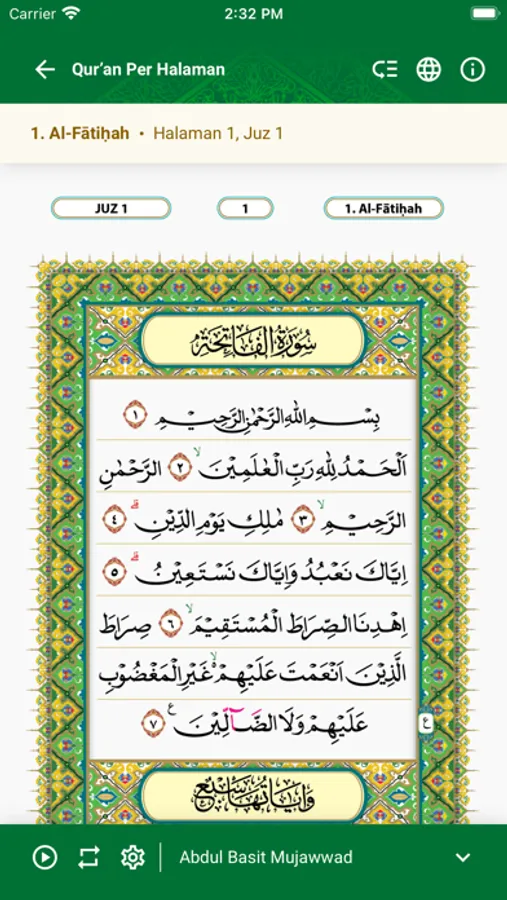 Carrier 2:32 PM
Qur'an Per Halaman
1. Al-Fātiḥah • Halaman 1, Juz 1
JUZ 1 1 1. Al-Fātiḥah
سُوْرَةُ الْفَاتِحَةِ
بِسْمِ اللّٰهِ الرَّحْمٰنِ الرَّحِيْمِ ١
اَلْحَمْدُ لِلّٰهِ رَبِّ الْعٰلَمِيْنَۙ ٢ الرَّحْمٰنِ
الرَّحِيْمِۙ ٣ مٰلِكِ يَوْمِ الدِّيْنِۗ ٤
اِيَّاكَ نَعْبُدُ وَاِيَّاكَ نَسْتَعِيْنُۗ ٥
اِهْدِنَا الصِّرَاطَ الْمُسْتَقِيْمَۙ ٦ صِرَاطَ
الَّذِيْنَ اَنْعَمْتَ عَلَيْهِمْۙ غَيْرِ الْمَغْضُوْبِ
عَلَيْهِمْ وَلَا الضَّاۤلِّيْنَࣖ ٧ ع
وَاٰيَاتُهَا سَبْعٌ
Abdul Basit Mujawwad